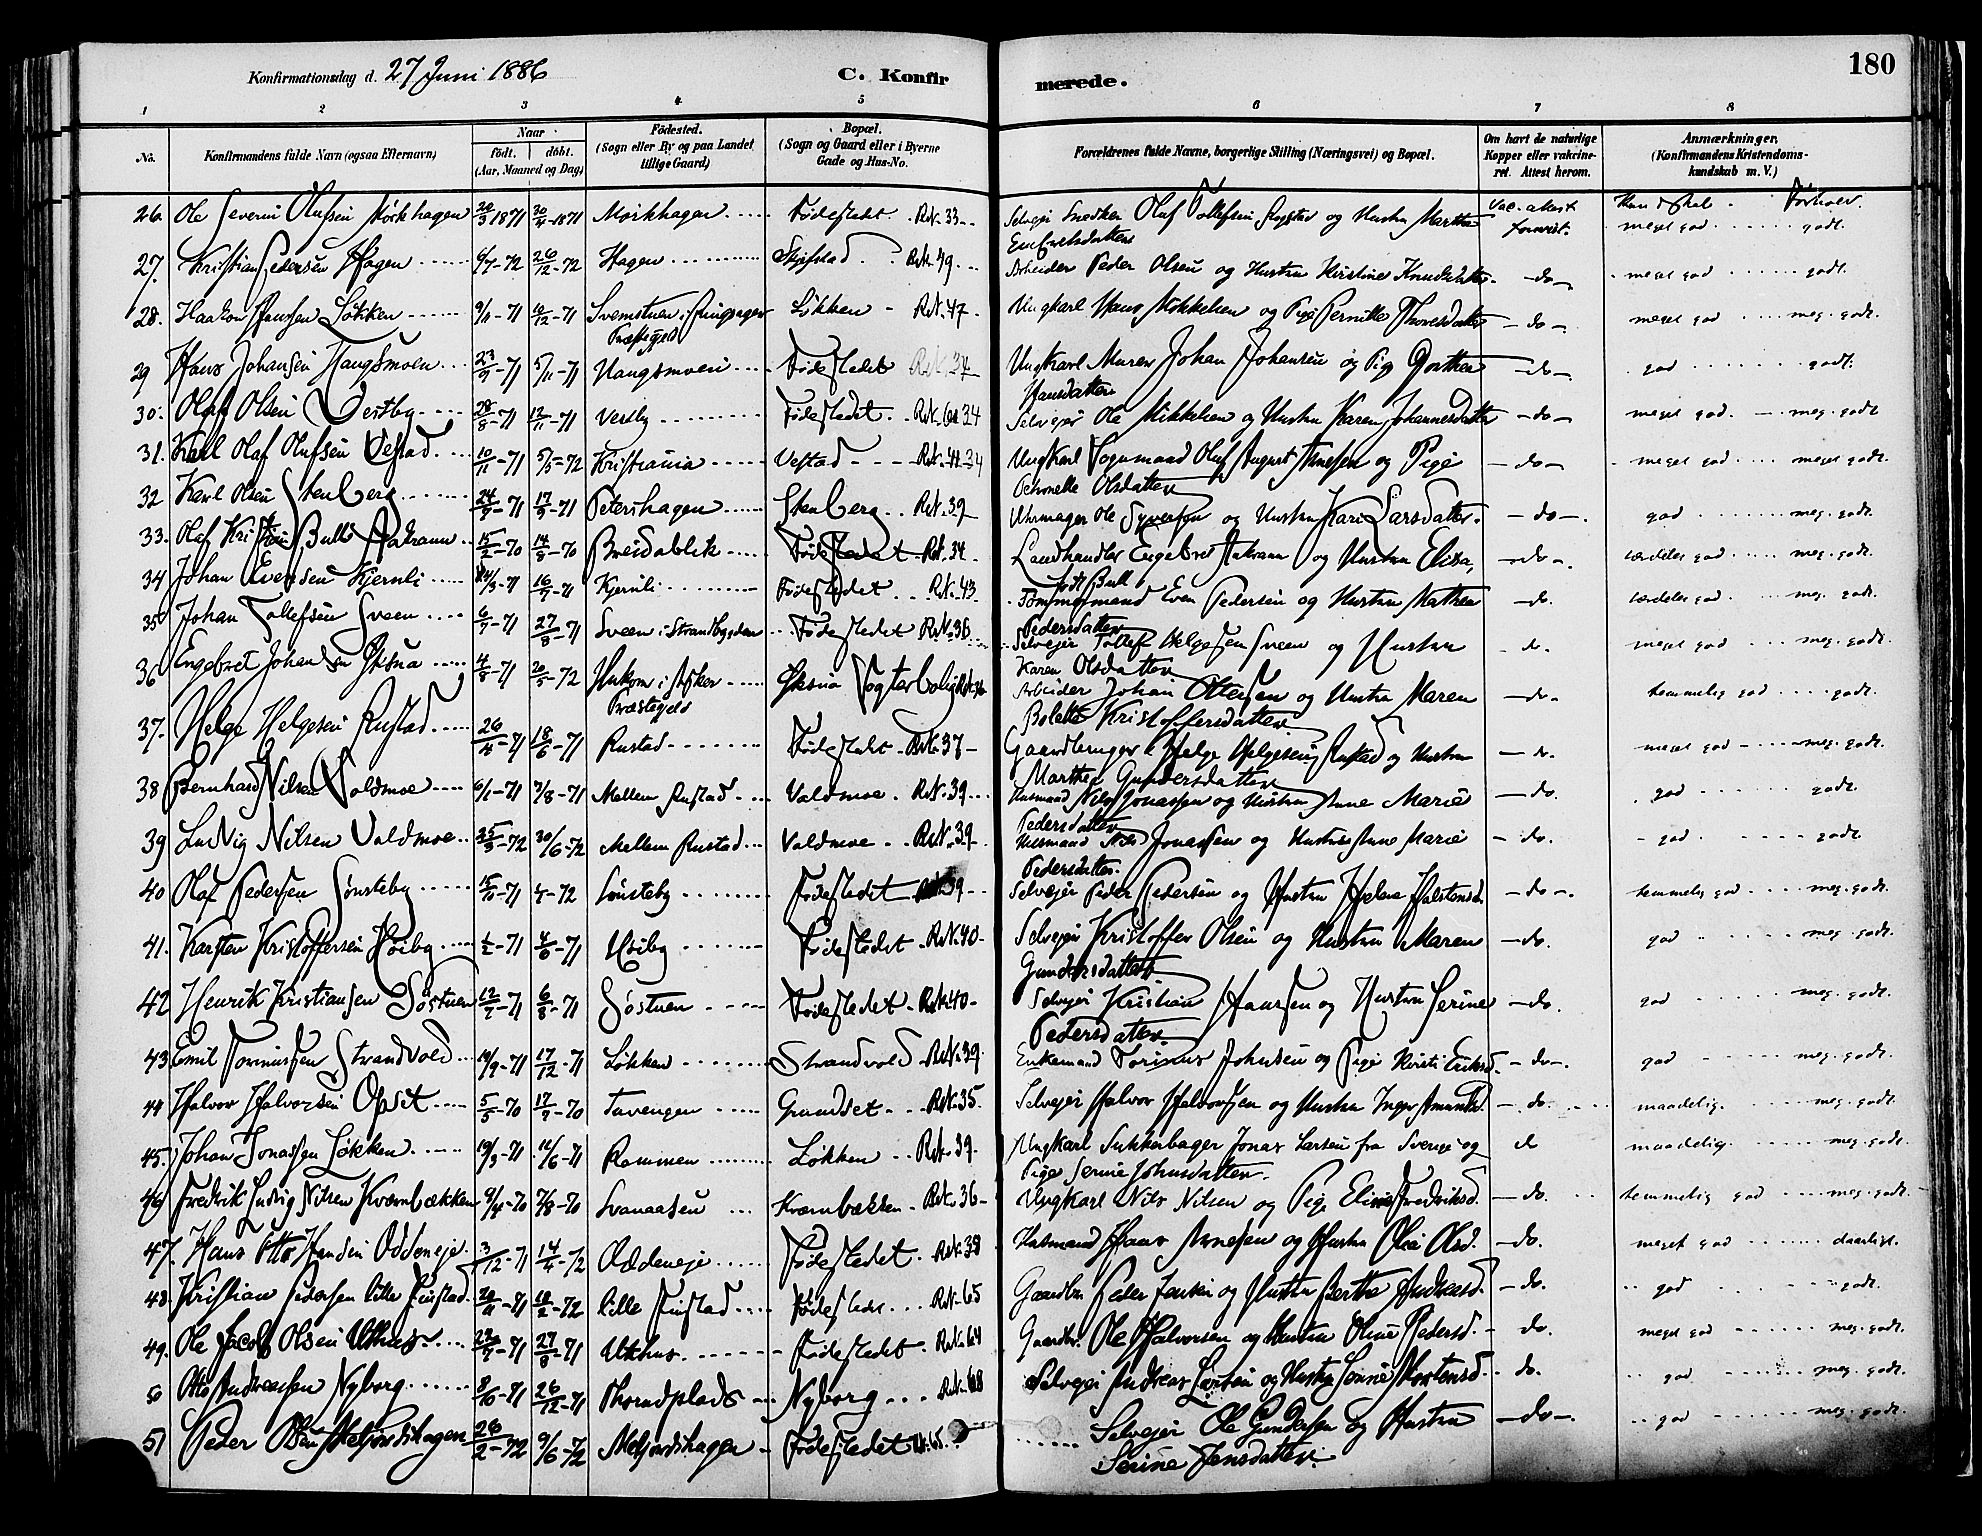 Konfirmationsdag d. 27 Juni 1886 C. Konfirmerede. 180
1 2 3 4 5 6 7 8
No. Konfirmandens fulde Navn (ogsaa Efternavn) Naar født. døbt. (Aar, Maaned og Dag) Fødested. (Sogn eller By og paa Landet tillige Gaard) Bopæl. (Sogn og Gaard eller i Byerne Gade og Hus-No. Forældrenes fulde Navne, borgerlige Stilling (Næringsvei) og Bopæl. Om havt de naturlige Kopper eller vakcineret. Attest herom. Anmærkninger. (Konfirmandens Kristendomskundskab m. V.)
26. Ole Severin Olufsen Mörkhagen 20/3 1871 30/4-1871 Mörkhagen Fødestedet. Rk. 33 Selvejer Snedker Oluf Tollefsen og Hustru Marthe Vac. attest forevist. meget god godt.
27. Kristian Pedersen Hagen 6/7-72 26/12-72 Hagen Rk. 49. Arbeider Peder Olsen og Hustru Kirstine Knudsdatter do meget god godt.
28. Haakon Hansen Løkken 9/11-71 10/12-71 Svenstuen i Ringsager Præstegjeld Løkken Rk. 47 Ungkarl Hans Mikkelsen og Pige Pernille Thoresdatter do meget god meg. godt.
29 Hans Johansen Haugsmoen 23/9-71 5/11-71 Haugsmoen Fødestedet Rk. 37 Ungkarl Murer Johan Johansen og Pige Dorthea Hansdatter do god godt.
30. Olaf Olsen Vestby 28/8-71 12/11-71 Vestby Fødestedet. Selvejer Ole Mikkelsen og Hustru Karen Johannesdatter do meget god. meg. godt
31. Karl Olaf Olufsen Vestad 10/11-71 5/5-72 Kristiania Vestad Ungkarl Oluf August Arnesen og Pige Petronelle Olsdatter do meget god meget godt.
32 Karl Olsen Stenberg 24/7-71 17/9-71 Petershagen Stenberg Rk. 39 Uhrmager Ole Syversen og Hustru Kari Larsdatter. do god meg. godt.
33. Olaf Kristian Bull Aakrann 15/2-70 14/8-70 Breidablik Fødestedet Rk. 34. Landhandler Engebret Aakrann og Hustru Elisa, født Bull do særdeles god meg. godt.
34 Johan Evensen Kjernli 24/3-71 16/7-71 Kjernli Fødestedet Rk. 43 Tømmermand Even Pedersen og Hustru Mathea Pedersdatter do. særdeles god meg. godt.
35 Johan Tollefsen Sveen 6/7-71 27/8-71 Sveen i Strandbygden Fødestedet Rk. 36 Selvejer Tollef Helgesen Sveen og Hustru Karen Olsdatter do. meget god meg. godt
36 Engebret Johansen Øksna 4/8-71 20/5-72 i Asker Præstegjeld Øksna Vogterbolig Rk. 36 Arbeider Johan Ottersen og Hustru Maren Bolette Kristoffersdatter do. temmelig god godt.
37. Helge Helgesen Rustad 26/4-71 18/6-71 Rustad Fødestedet Rk. 37 Gaardbruger Helge Helgesen Rustad og Hustru Marthe Gundersdatter do. meget god meg. godt.
38 Bernhard Nilsen Voldmoe 6/1-71 Mellem Rustad Valdmoe. Rk. 39 Husmand Nils Jonassen og Hustru Anne Marie Pedersdatter do. god godt.
39 Ludvig Nilsen Voldmoe 25/3-72 30/6-72 Mellem Rustad Valdmoe Rk. 39 Husmand Nils Jonassen og Hustru Anne Marie Pedersdatter. do. god godt
40 Olaf Pedersen Sønsteby 15/10-71 Sønsteby Fødestedet Rk. 39 Selvejer Peder Pedersen og Hustru Helene Halstensd. do temmelig god meg. godt.
41. Karsten Kristoffersen Høiby 1/2-71 4/6-71 Høiby Fødestedet Rk. 40 Selvejer Kristoffer Olsen og Hustru Maren Gundersdatter do. god meg. godt.
42 Henrik Kristiansen Søstuen 12/7-71 6/8-71 Søstuen Fødestedet Rk. 40 Selvejer Kristian Hansen og Hustru Serine Pedersdatter do. god meg. godt.
43 Emil Strandvold 19/9-71 17/12-71 Løkken Strandvold Rk. 39. Enkemand Johnsen og Pige Kirsti Eriksd. do god meg. godt.
44 Halvor Halvorsen Opset 5/5-70 17/7-70 Tavengen Grundset Rk. 35. Selvejer Halvor Halvorsen og Hustru Inger do. maadelig. meg. godt.
45. Johan Jonassen Løkken 19/3-71 11/6-71 Rommen Løkken Rk. 39 Ungkarl Sukkerbager Jonas Larsen fra Sverige og Pige Serine Johnsdatter. do maadelig. meg. godt.
46 Fredrik Ludvig Nilsen Kværnbækken 9/4-70 7/8-70 Svenaasen Kværnbækken Rk. 36 Ungkarl Nils Nilsen og Pige Eline Fredriksd. do. temmelig god meg. godt.
47. Hans Otto Hansen Oddeneje. 3/12-71 14/4-72 Oddeneje Fødestedet. Rk. 38 Husmand Hans Arnesen og Hustru Olea Olsd. do. meget god daarligt.
48. Kristian Pedersen lille Finstad. 20/11-71 18/2-72 lille Finstad Fødestedet Rk. 65 Gaardbr. Peder Jensen og Hustru Berthe Andreasd. do. god godt.
49. Ole Jacob Olsen Uthus 23/7-71 27/8-71 Uthus Fødestedet Rk. 64 Gaardbr. Ole Halvorsen og Hustru Oline Pedersd. do. meget god meg. godt.
50 Otto Andreassen Nyborg 8/10-71 26/12-71 Nyborg Rk. 68 Selvejer Andreas Larsen og Hustru Mortensd. do. god meg. godt.
51 Peder Olsen Mefjordshagen 26/2-72 9/6-72 Mefjordshagen Fødestedet Rk. 65. Selvejer Ole Gundersen og Hustru Serine Jensdatter. do. god meg. godt.